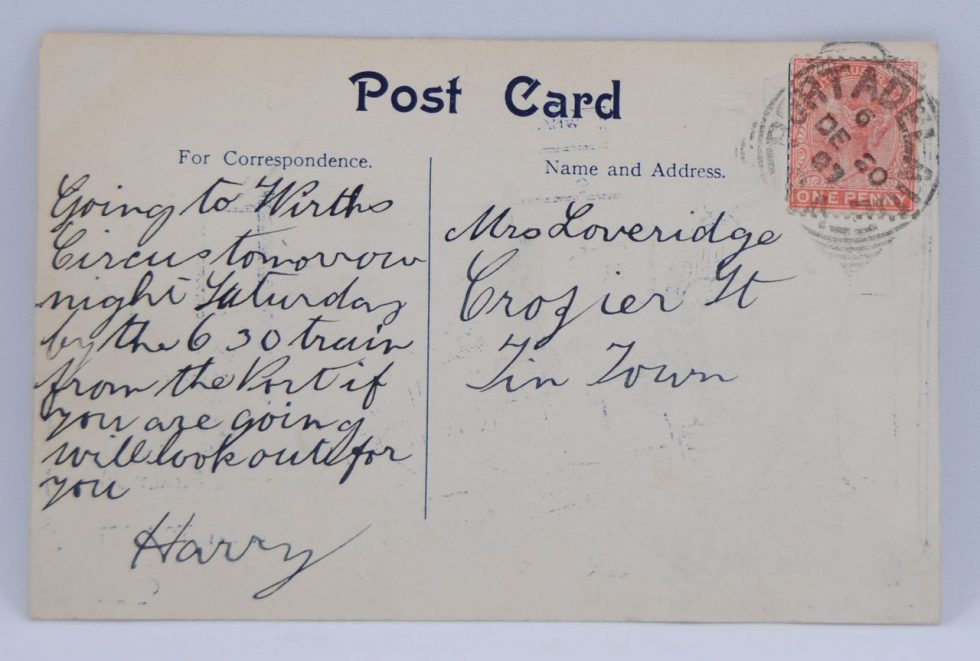 Post Card
For Correspondence.
Going to Wirths
Circus tomorrow
night Saturday
by the 6 30 train
from the Port if
you are going
will look out for
you
Harry
Name and Address.
Mrs Loveridge
Crozier St
Tin Town
PORT ADELAIDE
6
DE 20
07
ONE PENNY